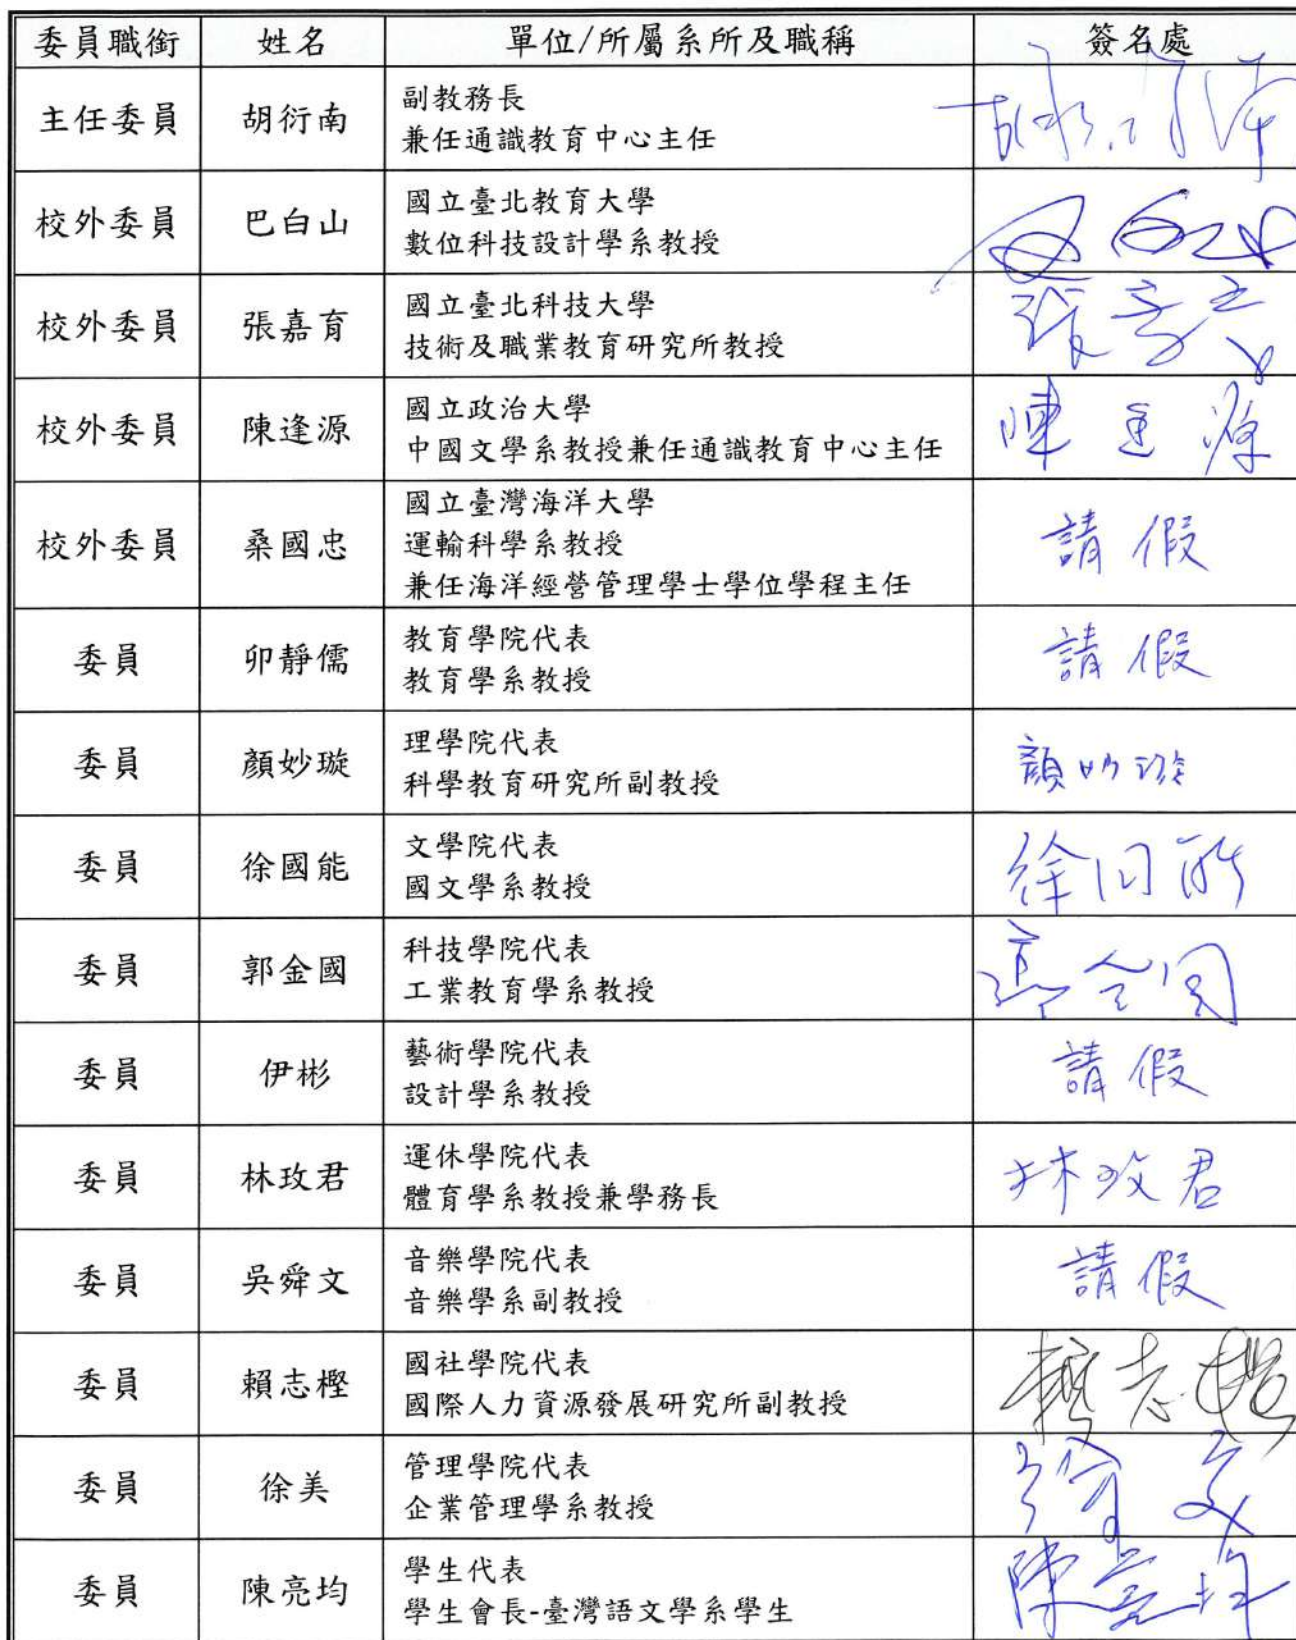 委員職銜 姓名 單位/所屬系所及職稱 簽名處
主任委員 胡衍南 副教務長
兼任通識教育中心主任
胡衍南
校外委員 巴白山 國立臺北教育大學
數位科技設計學系教授
校外委員 張嘉育 國立臺北科技大學
技術及職業教育研究所教授
張嘉育
校外委員 陳逢源 國立政治大學
中國文學系教授兼任通識教育中心主任
陳逢源
校外委員 桑國忠 國立臺灣海洋大學
運輸科學系教授
兼任海洋經營管理學士學位學程主任
請假
委員 卯靜儒 教育學院代表
教育學系教授
請假
委員 顏妙璇 理學院代表
科學教育研究所副教授
顏妙璇
委員 徐國能 文學院代表
國文學系教授
徐国能
委員 郭金國 科技學院代表
工業教育學系教授
郭金国
委員 伊彬 藝術學院代表
設計學系教授
請假
委員 林玫君 運休學院代表
體育學系教授兼學務長
林玫君
委員 吳舜文 音樂學院代表
音樂學系副教授
請假
委員 賴志樫 國社學院代表
國際人力資源發展研究所副教授
賴志樫
委員 徐美 管理學院代表
企業管理學系教授
徐美
委員 陳亮均 學生代表
學生會長-臺灣語文學系學生
陳亮均